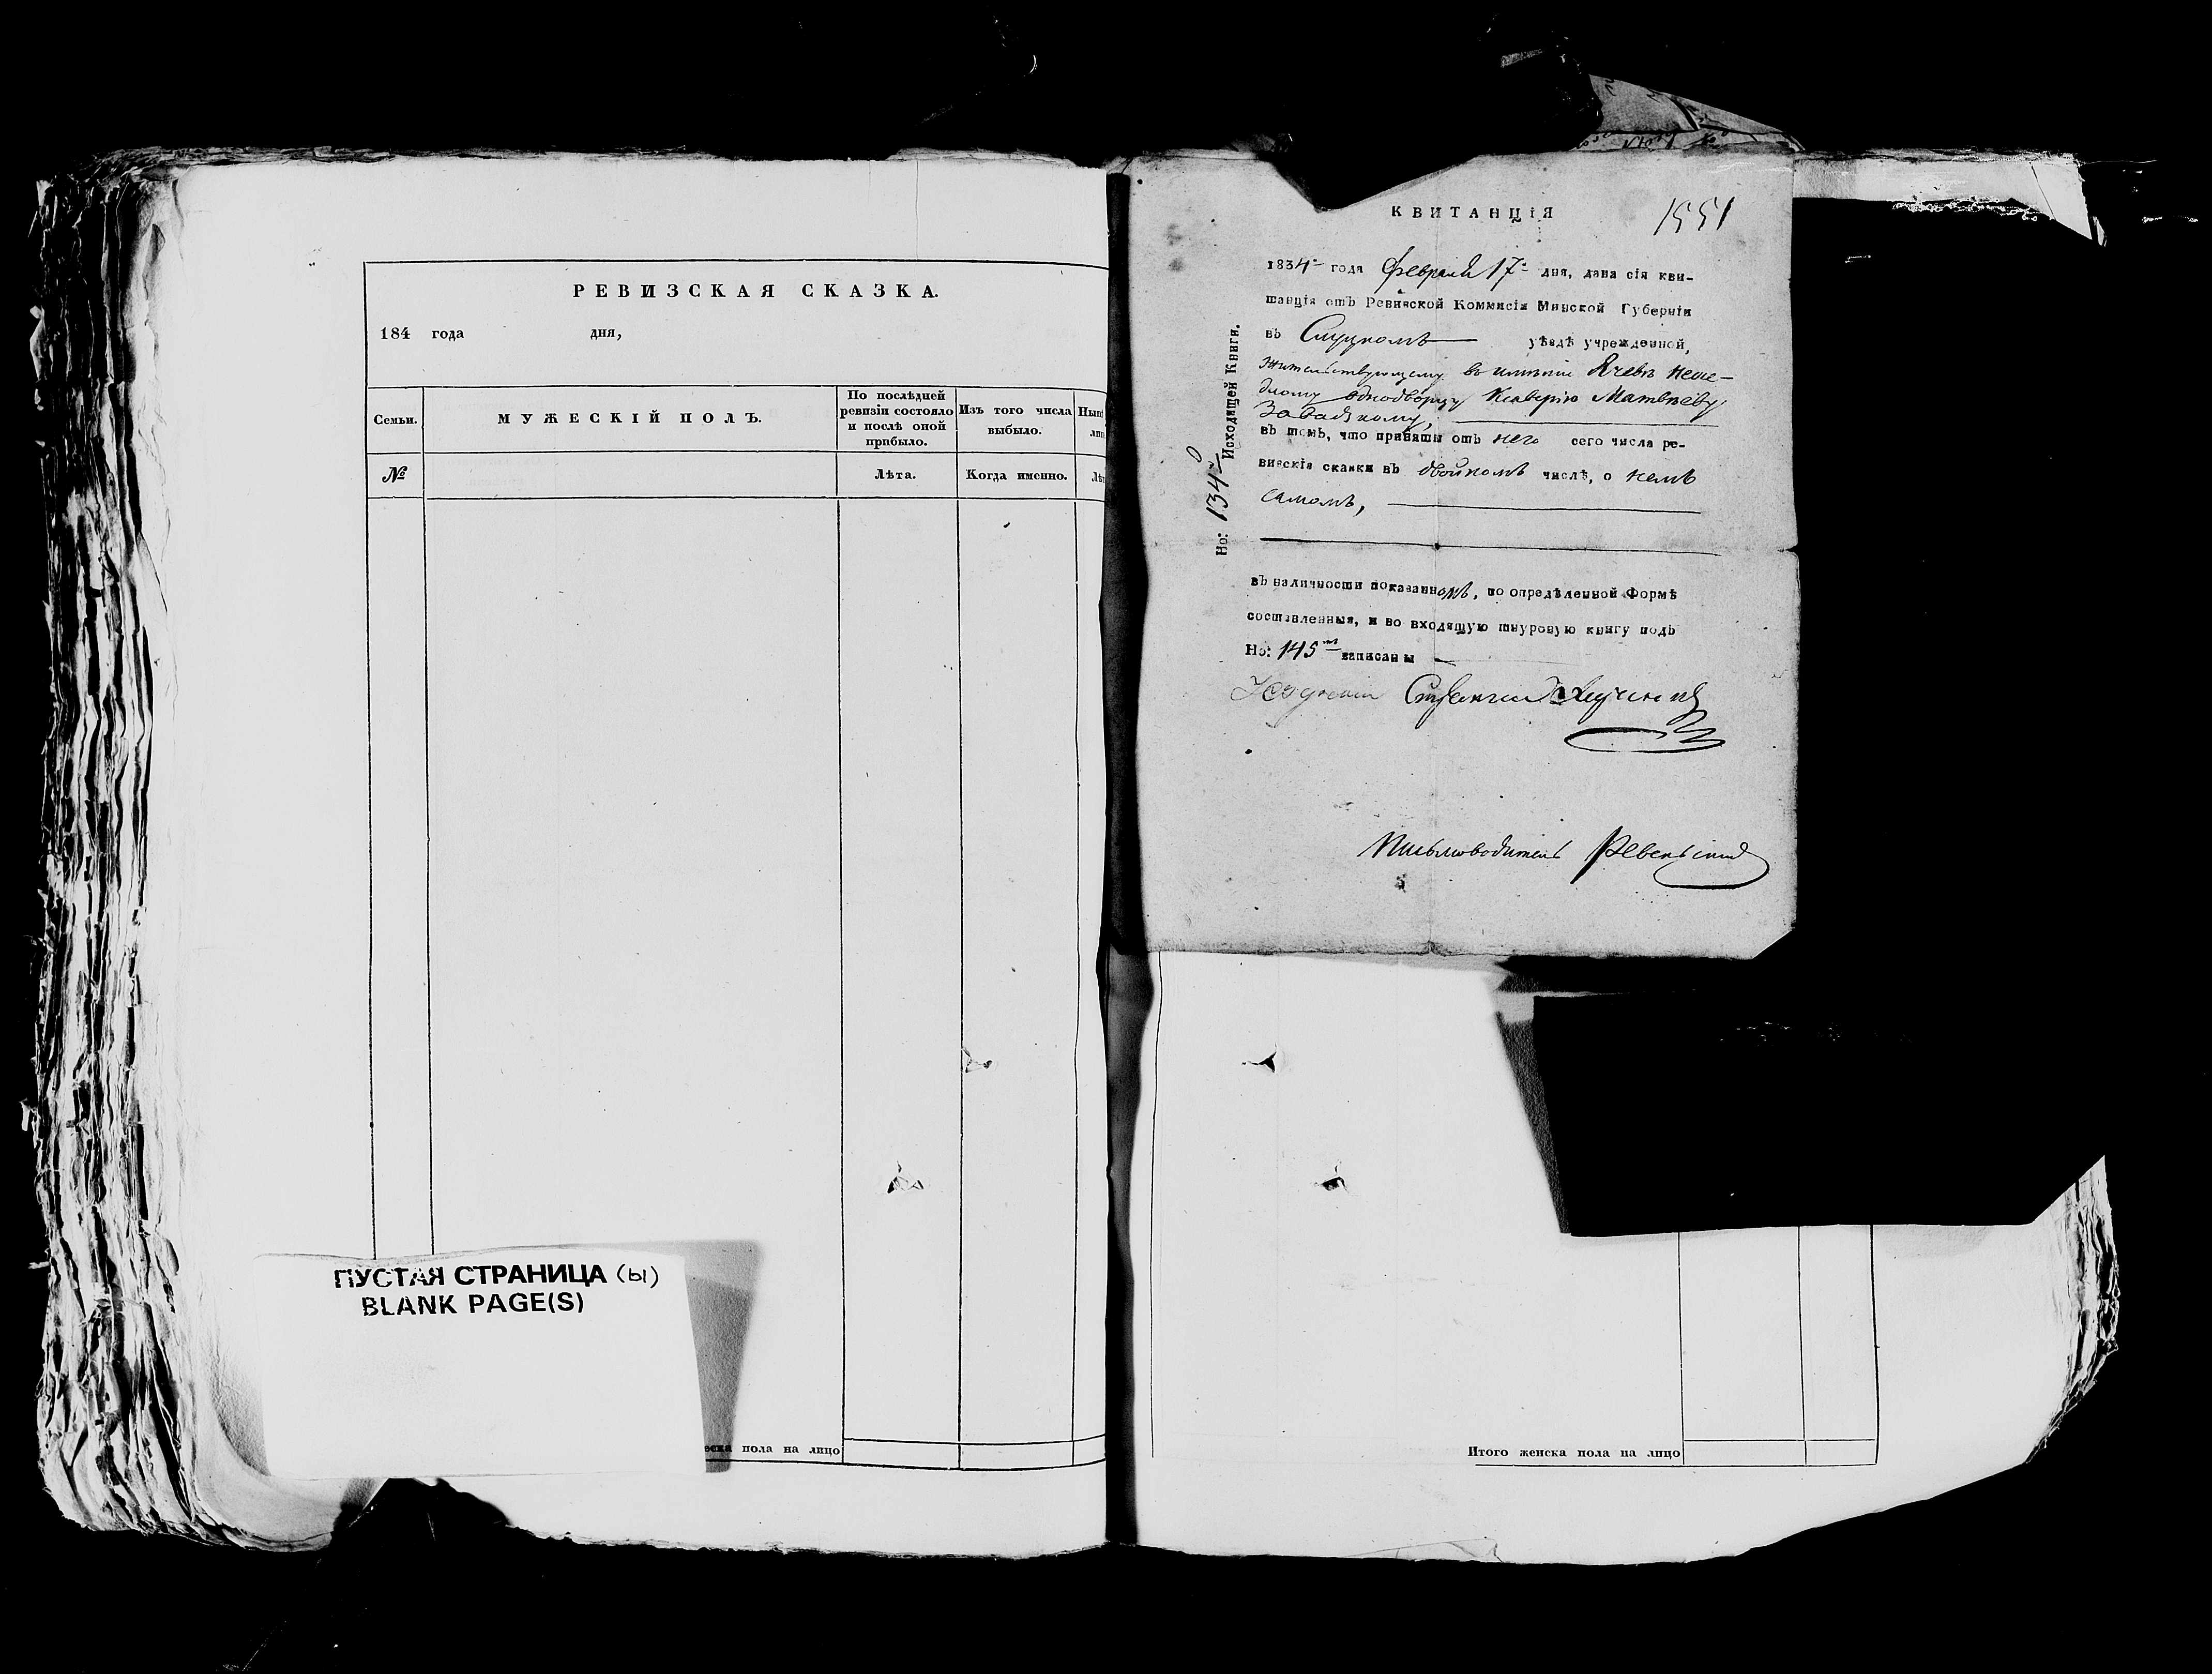 РЕВИЗСКАЯ СКАЗКА.
184 года дня,
Семьи.
МУЖЕСКІЙ ПОЛЪ.
По послѣдней ревизіи состояло и послѣ оной прибыло.
Изъ того числа выбыло.
№
Лѣта.
Когда именно.
ПУСТАЯ СТРАНИЦА (ы)
BLANK PAGE(S)
пола на лицо
КВИТАНЦІЯ
1551
1834 года Февраля 17 дня, дана сія кви-
танція отъ Ревизской Коммисіи Минской Губерніи
въ Слуцкомъ уѣздѣ учрежденной,
жительствующему въ имѣніи
однодворцу Ксаверію Матвѣеву
въ томъ, что приняты отъ него сего числа ре-
визскія сказки въ двойномъ числѣ, о немъ
самомъ,
въ наличности показанномъ, по опредѣленной формѣ
составленныя, и во входящую шнуровую книгу подъ
Но: 145 записаны
Письмоводитель
Но: 134 Исходящей Книги.
Итого женска пола на лицо